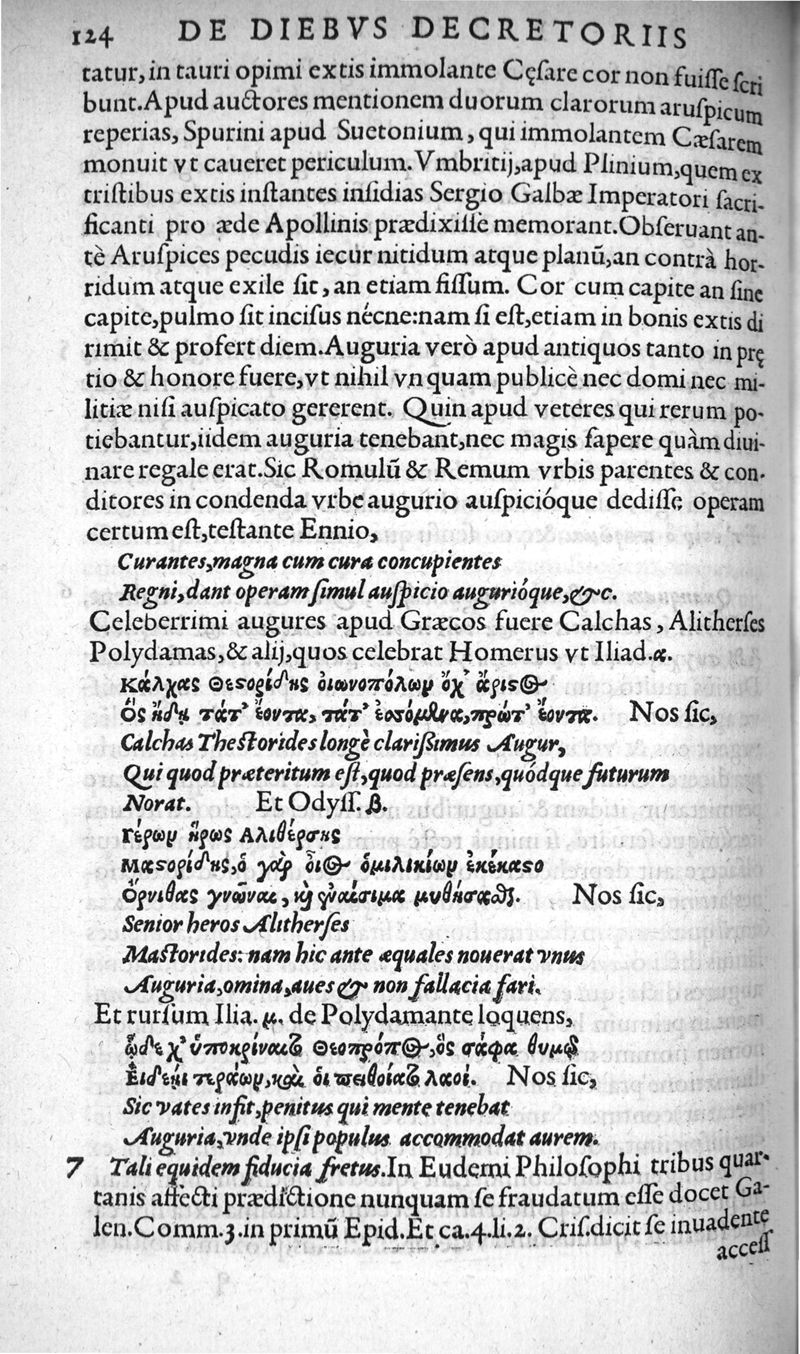 124 DE DIEBVS DECRETORIIS
tatur, in tauri opimi extis immolante Cęſare cor non fuiſſe ſcri
bunt. Apud auctores mentionem duorum clarorum aruſpicum
reperias, Spurini apud Suetonium, qui immolantem Cæſarem
monuit vt caueret periculum. Vmbritij, apud Plinium, quem ex
triſtibus extis inſtantes inſidias Sergio Galbæ Imperatori ſacri-
ficanti pro æde Apollinis prædixiſſe memorant. Obſeruant an-
tè Aruſpices pecudis iecur nitidum atque planũ, an contrà hor-
ridum atque exile ſit, an etiam fiſſum. Cor cum capite an ſine
capite, pulmo ſit inciſus nécne: nam ſi eſt, etiam in bonis extis di
rimit & profert diem. Auguria verò apud antiquos tanto in prę
tio & honore fuere, vt nihil vnquam publicè nec domi nec mi-
litiæ niſi auſpicato gererent. Quin apud veteres qui rerum po-
tiebantur, iidem auguria tenebant, nec magis ſapere quàm diui-
nare regale erat. Sic Romulũ & Remum vrbis parentes & con-
ditores in condenda vrbe augurio auſpicióque dediſſe operam
certum eſt, teſtante Ennio,
Curantes, magna cum cura concupientes
Regni, dant operam ſimul auſpicio augurióque, &c.
Celeberrimi augures apud Græcos fuere Calchas, Alitherſes
Polydamas, & alij, quos celebrat Homerus vt Iliad. α.
Κάλχας Θεϛορίδης ὀιωνοπόλων ὄχ' ἄριϛος
Ὃς ἤδη τάτ' ἔοντα, τάτ' ἐοσόμενα, πρώτ' ἔοντα. Nos ſic,
Calchas Theſtorides longè clariſſimus Augur,
Qui quod præteritum eſt, quod præſens, quódque futurum
Norat. Et Odyſſ. β.
Γέρων ἥρως Αλιθέρσης
Μαϛορίδης, ὁ γὰρ ὄιος ὁμιλικίων ἐκέκαϛο
Ὄρνιθας γνῶναι, καὶ ἐναίσιμα μυθήσαϑαι. Nos ſic,
Senior heros Alitherſes
Maſtorides: nam hic ante æquales nouerat vnus
Auguria, omina, aues & non fallacia fari.
Et rurſum Ilia. μ. de Polydamante loquens,
ὧδε χ' ὑποκρίναιτο Θεοπρόπος, ὃς σάφα θυμῷ
Ἐιδείη τεράων, καὶ ὁι πειθοίατο λαοί. Nos ſic,
Sic vates infit, penitus qui mente tenebat
Auguria, vnde ipſi populus accommodat aurem.
7 Tali equidem fiducia fretus. In Eudemi Philoſophi tribus quar-
tanis affecti prædictione nunquam ſe fraudatum eſſe docet Ga-
len. Comm. 3. in primũ Epid. Et ca. 4. li. 2. Criſ. dicit ſe inuadente
acceſſ